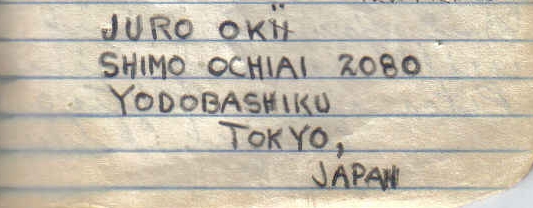 JURO OKII
SHIMO OCHIAI 2080
YODOBASHIKU
TOKYO,
JAPAN